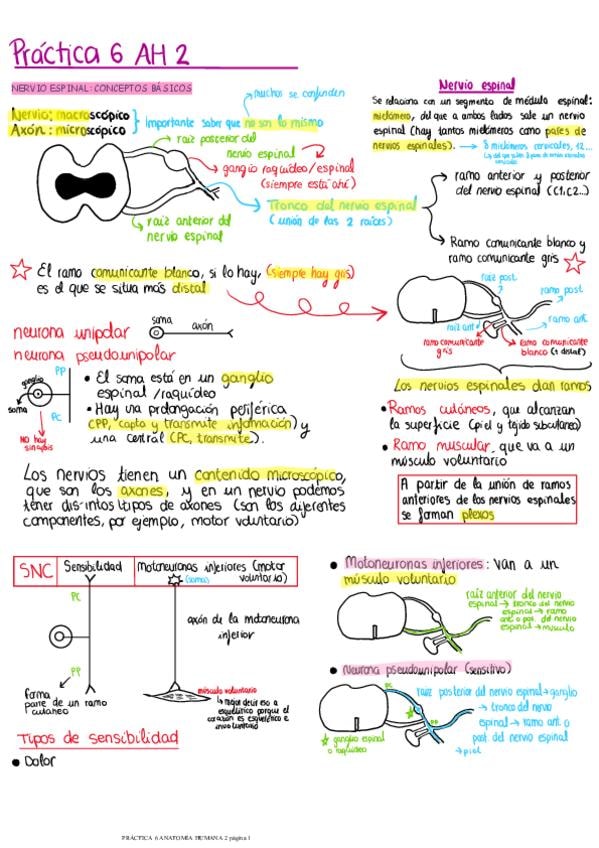 Práctica 6 AH 2
NERVIO ESPINAL: CONCEPTOS BÁSICOS
Nervio: macroscópico
Axón: microscópico
Importante saber que no son lo mismo
muchos se confunden
raíz posterior del
nervio espinal
ganglio raquídeo/espinal
(siempre está ahí)
Tronco del nervio espinal
(unión de las 2 raíces)
raíz anterior del
nervio espinal
Nervio espinal
Se relaciona con un segmento de médula espinal:
mielómero, del que a ambos lados sale un nervio
espinal (hay tantos mielómeros como pares de
nervios espinales).
8 mielómeros cervicales, 12...
ramo anterior y posterior
del nervio espinal (C1, C2...)
Ramo comunicante blanco y
ramo comunicante gris
El ramo comunicante blanco, si lo hay, (siempre hay gris)
es el que se situa más distal
raíz post.
ramo post.
raíz ant.
ramo ant.
ramo comunicante
gris
ramo comunicante
blanco (+ distal)
neurona unipolar
soma
axón
neurona pseudounipolar
ganglio
PP
soma
PC
NO hay
sinapsis
• El soma está en un ganglio
espinal /raquídeo
• Hay una prolongación periférica
(PP, capta y transmite información) y
una central (PC, transmite).
Los nervios espinales dan ramos
• Ramos cutáneos, que alcanzan
la superficie (piel y tejido subcutáneo)
• Ramo muscular, que va a un
músculo voluntario
A partir de la unión de ramos
anteriores de los nervios espinales
se forman plexos
Los nervios tienen un contenido microscópico,
que son los axones, y en un nervio podemos
tener distintos tipos de axones (son los diferentes
componentes, por ejemplo, motor voluntario)
SNC
Sensibilidad
Motoneuronas inferiores (motor
voluntario)
(somas)
PC
axón de la motoneurona
inferior
PP
forma
parte de un ramo
cutáneo
músculo voluntario
mejor decir eso a
esquelético porque el
corazón es esquelético e
involuntario
• Motoneuronas inferiores: van a un
músculo voluntario
raíz anterior del nervio
espinal → tronco del nervio
espinal → ramo
ant. o pos. del nervio
espinal → músculo
• Neurona pseudounipolar (sensitivo)
PC
raíz posterior del nervio espinal → ganglio
→ tronco del nervio
espinal → ramo ant. o
post. del nervio espinal
→ piel
PP
ganglio espinal
o raquídeo
Tipos de sensibilidad
• Dolor
PRÁCTICA 6 ANATOMÍA HUMANA 2 página 1